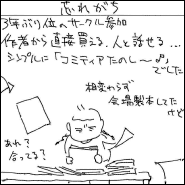 忘れがち
3年ぶり位のサークル参加
作者から直接買える、人と話せる…
シンプルに「コミティアたのし〜♪」
でした
相変わらず
会場製本してた
けど
あれ?
合ってる?